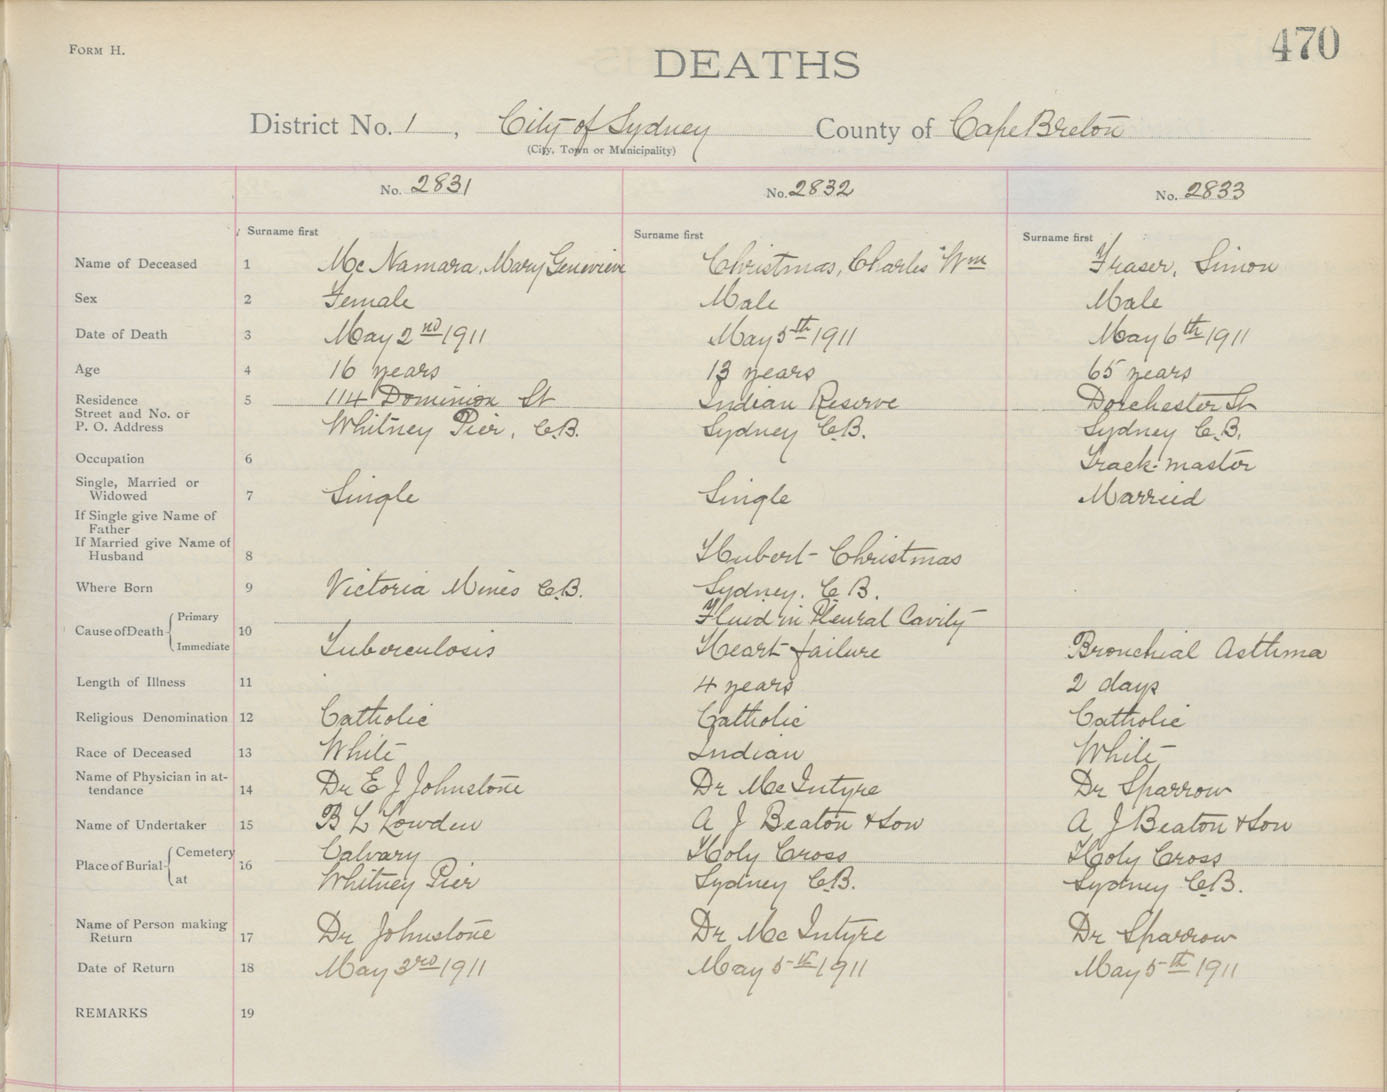 FORM H.
470
DEATHS
District No. 1, City of Sydney County of Cape Breton
(City, Town or Municipality)
No. 2831 No. 2832 No. 2833
Surname first Surname first Surname first
Name of Deceased 1 McNamara, Mary Genevieve Christmas, Charles Wm Fraser, Simon
Sex 2 Female Male Male
Date of Death 3 May 2nd 1911 May 5th 1911 May 6th 1911
Age 4 16 years 13 years 65 years
Residence 5 114 Dominion St Indian Reserve Dorchester St
Street and No. or
P. O. Address Whitney Pier, C.B. Sydney C.B. Sydney C.B.
Occupation 6 Track-master
Single, Married or
Widowed 7 Single Single Marreid
If Single give Name of
Father
If Married give Name of
Husband 8 Hubert Christmas
Where Born 9 Victoria Mines C.B. Sydney. C.B.
Cause of Death Primary Fluid in Pleural Cavity
10
Immediate Tuberculosis Heart failure Bronchial Asthma
Length of Illness 11 4 years 2 days
Religious Denomination 12 Catholic Catholic Catholic
Race of Deceased 13 White Indian White
Name of Physician in at-
tendance 14 Dr E J Johnstone Dr McIntyre Dr Sparrow
Name of Undertaker 15 B L Lowden A J Beaton & Son A J Beaton & Son
Place of Burial Cemetery 16 Calvary Holy Cross Holy Cross
at Whitney Pier Sydney C.B. Sydney C.B.
Name of Person making
Return 17 Dr Johnstone Dr McIntyre Dr Sparrow
Date of Return 18 May 3rd 1911 May 5th 1911 May 5th 1911
REMARKS 19